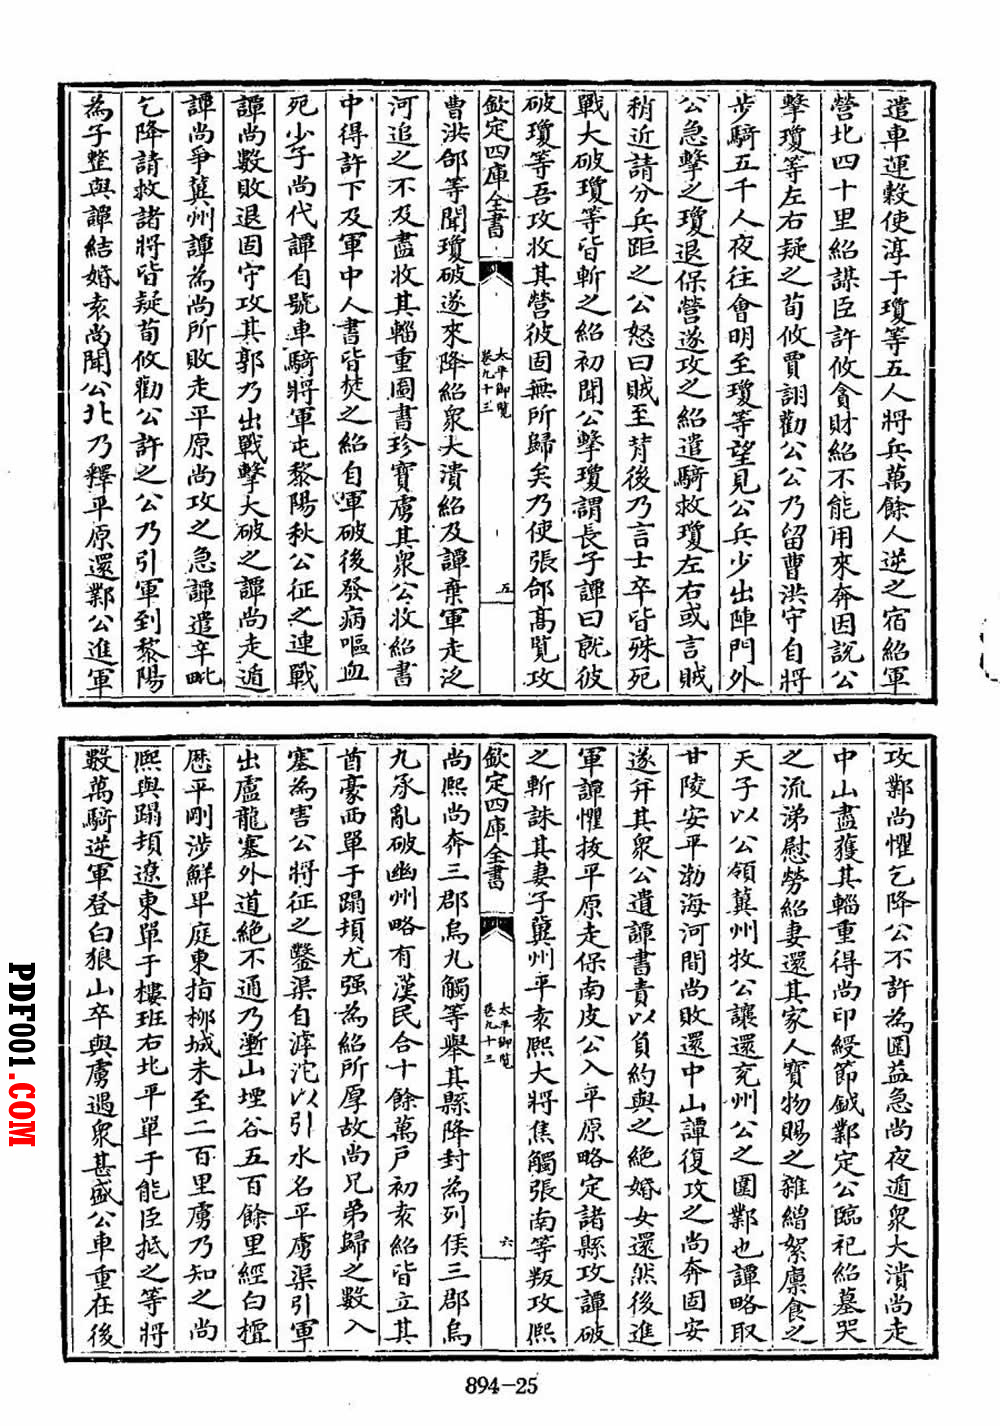 遣車運穀使淳于瓊等五人將兵萬餘人逆之宿紹軍
營北四十里紹謀臣許攸貪財紹不能用來奔因說公
擊瓊等左右疑之荀攸賈詡勸公公乃留曹洪守自將
步騎五千人夜往會明至瓊等望見公兵少出陣門外
公急擊之瓊退保營遂攻之紹遣騎救瓊左右或言賊
稍近請分兵距之公怒曰賊至背後乃言士卒皆殊死
戰大破瓊等皆斬之紹初聞公擊瓊謂長子譚曰就彼
破瓊等吾攻收其營彼固無所歸矣乃使張郃髙覧攻
欽定四庫全書
太平御覧
卷九十三
五
曹洪郃等聞瓊破遂來降紹衆大潰紹及譚棄軍走泛
河追之不及盡收其輜重圖書珍寳虜其衆公收紹書
中得許下及軍中人書皆焚之紹自軍破後發病嘔血
死少子尚代譚自號車騎將軍屯黎陽秋公征之連戰
譚尚數敗退固守攻其郭乃出戰擊大破之譚尚走遁
譚尚爭冀州譚為尚所敗走平原尚攻之急譚遣辛毗
乞降請救諸將皆疑荀攸勸公許之公乃引軍到黎陽
為子整與譚結婚袁尚聞公北乃釋平原還鄴公進軍
攻鄴尚懼乞降公不許為圍益急尚夜遁衆大潰尚走
中山盡獲其輜重得尚印綬節鉞鄴定公臨祀紹墓哭
之流涕慰勞紹妻還其家人寳物賜之雜繒絮廪食之
天子以公領冀州牧公讓還兖州公之圍鄴也譚略取
甘陵安平渤海河間尚敗還中山譚復攻之尚奔固安
遂并其衆公遺譚書責以負約與之絶婚女還然後進
軍譚懼拔平原走保南皮公入平原略定諸縣攻譚破
之斬誅其妻子冀州平袁熙大將焦觸張南等叛攻熙
欽定四庫全書
太平御覧
卷九十三
六
尚熙尚奔三郡烏九觸等舉其縣降封為列侯三郡烏
九承亂破幽州略有漢民合十餘萬戶初袁紹皆立其
酋豪西單于蹋頓尤强為紹所厚故尚兄弟歸之數入
塞為害公將征之鑿渠自滹沱以引水名平虜渠引軍
出盧龍塞外道絶不通乃塹山堙谷五百餘里經白檀
歴平剛涉鮮卑庭東指栁城未至二百里虜乃知之尚
熙與蹋頓遼東單于樓班右北平單于能臣抵之等將
數萬騎逆軍登白狼山卒與虜遇衆甚盛公車重在後
894-25
PDF001.COM